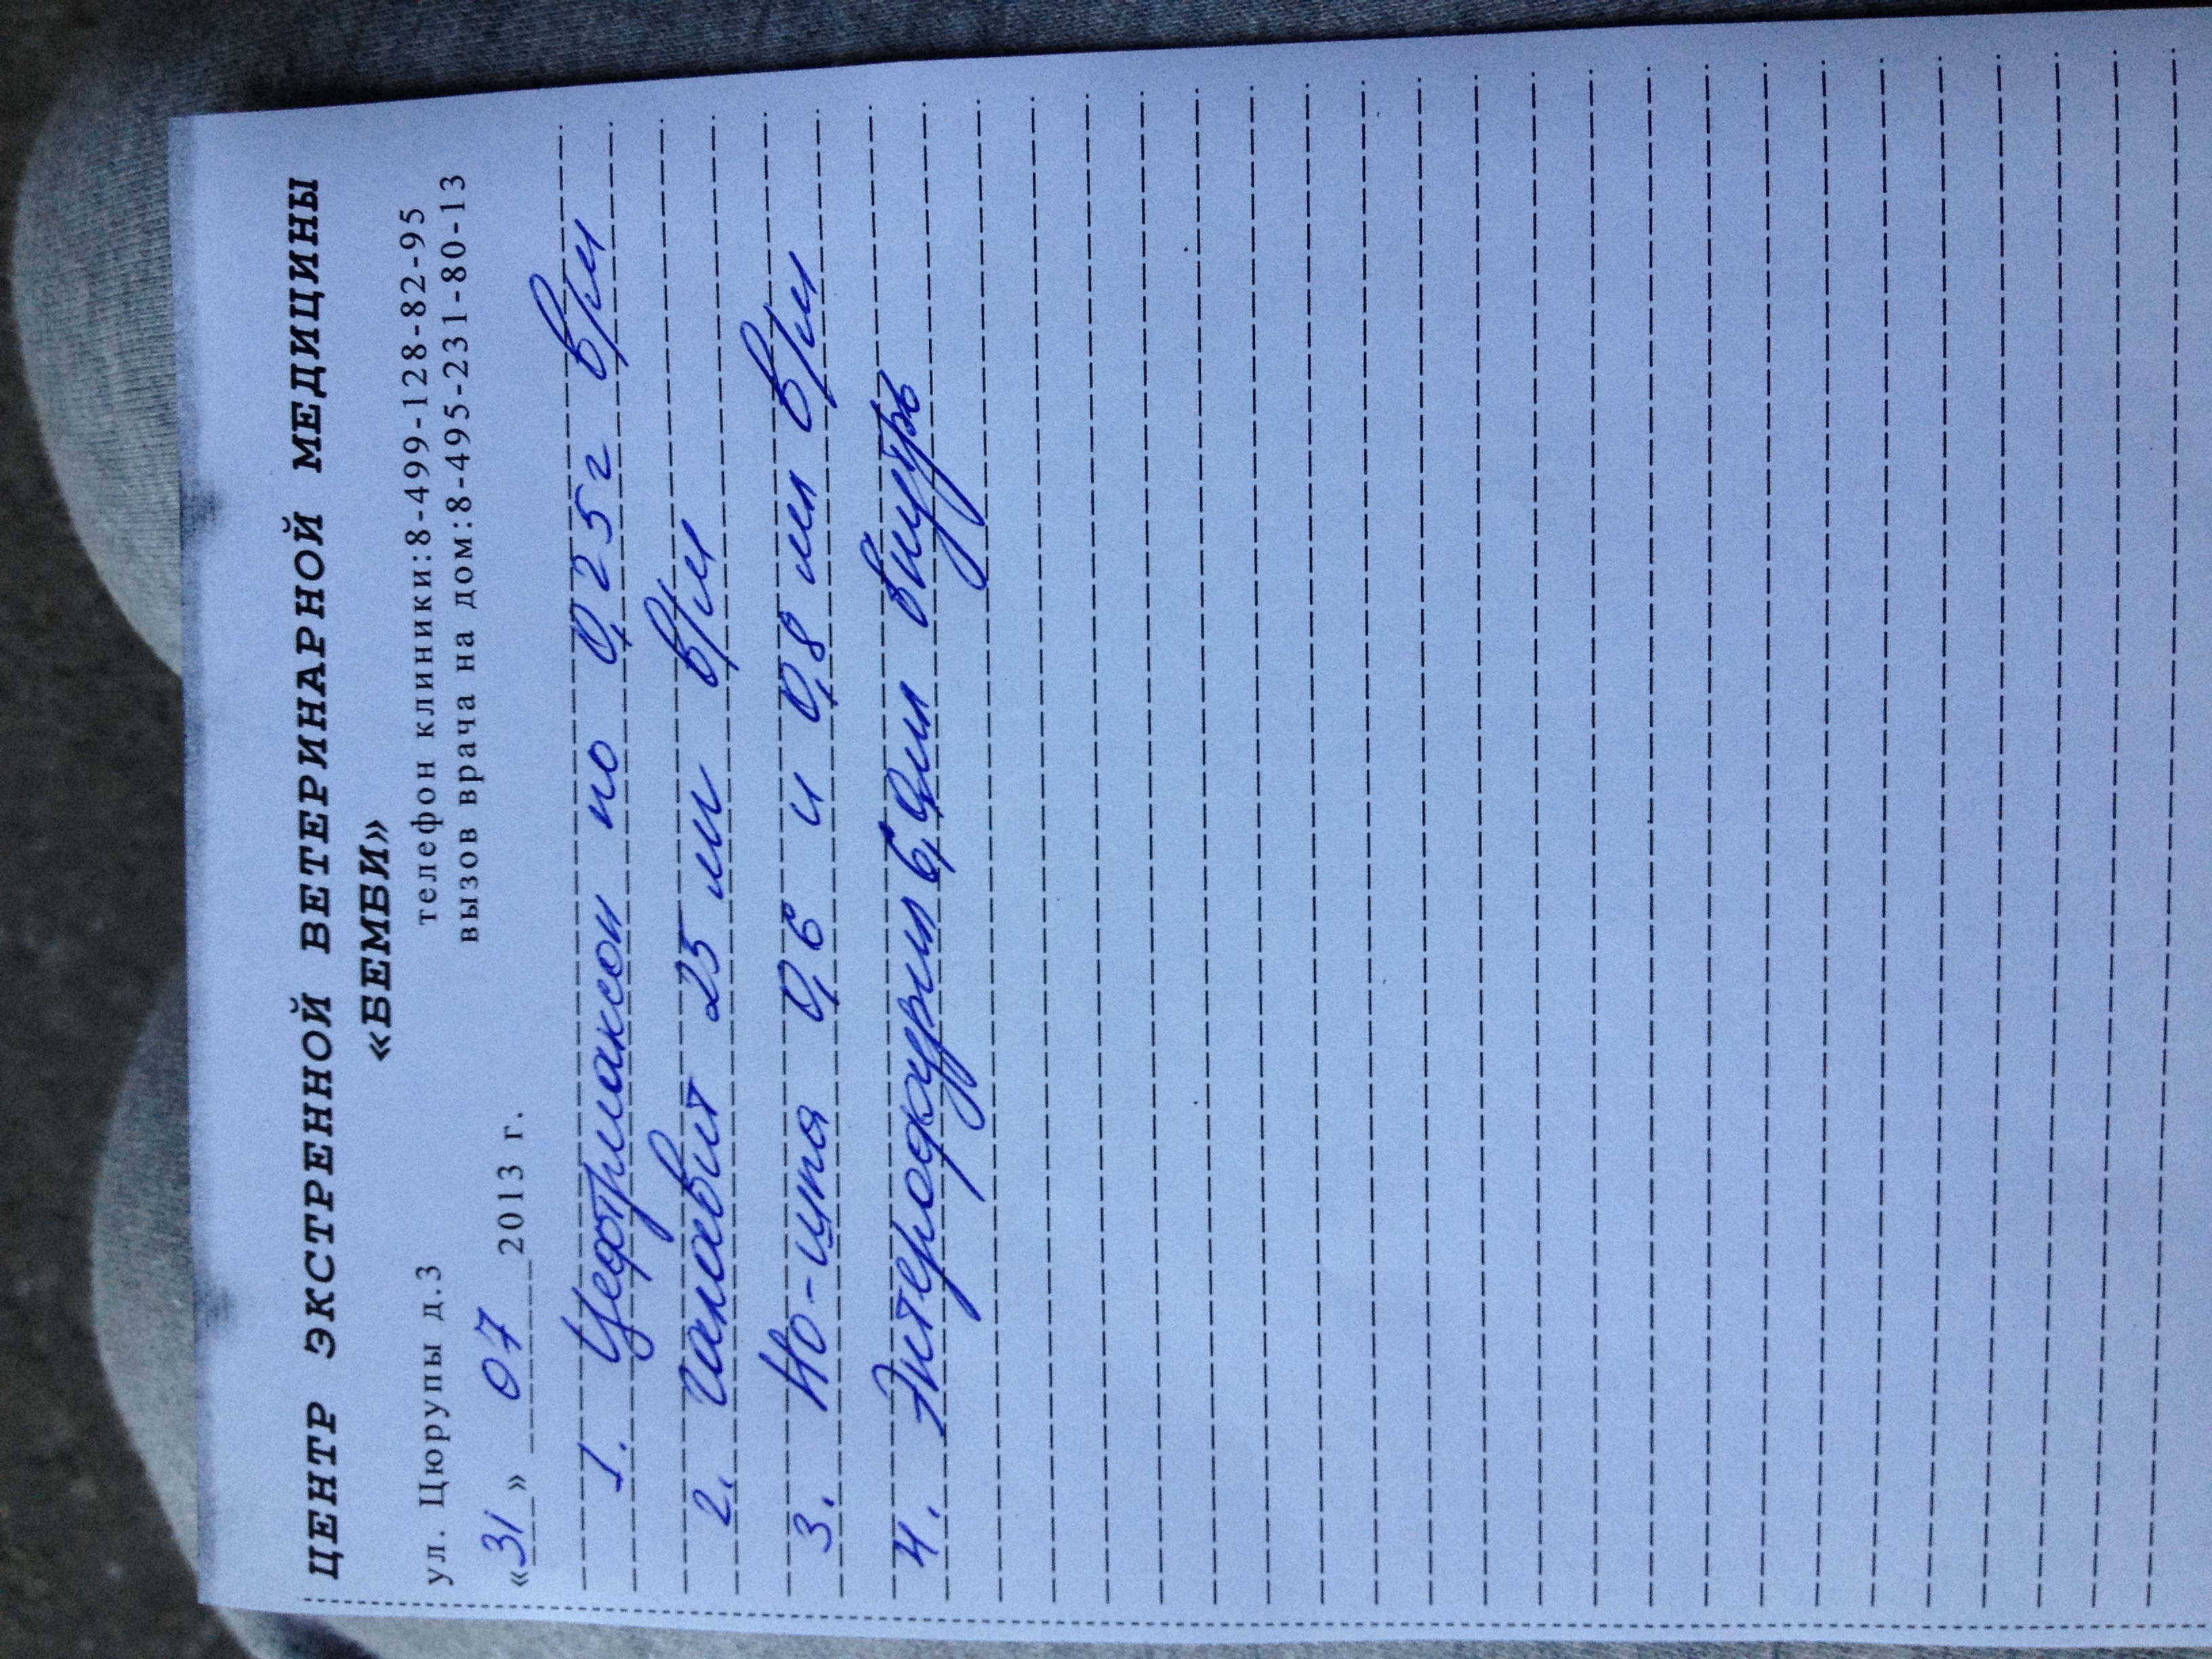 ЦЕНТР ЭКСТРЕННОЙ ВЕТЕРИНАРНОЙ МЕДИЦИНЫ
«БЕМБИ»
ул. Цюрупы д.3 телефон клиники:8-499-128-82-95
вызов врача на дом:8-495-231-80-13
«31» 07 2013 г.
1. Цефтриаксон по 0,25г в/м
2. Гамавит 25 мл в/м
3. Но-шпа 0,6 и 0,8 мл в/м
4. Энтерофурил внутрь